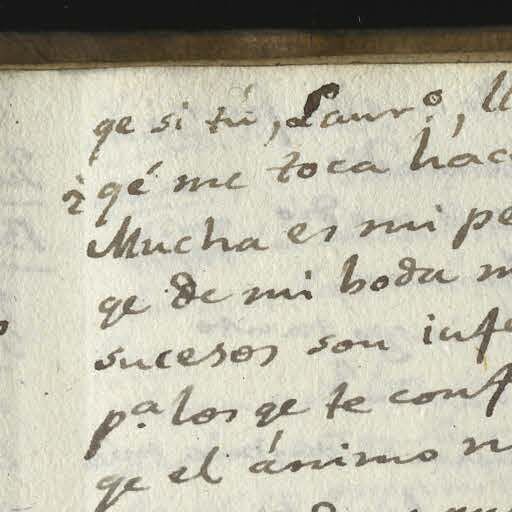 qe si tú, Laur.º, ll
¿qé me toca hac
Mucha es mi pe
qe de mi boda m
sucesos son infe
p.a los qe te conf
qe el ánimo n